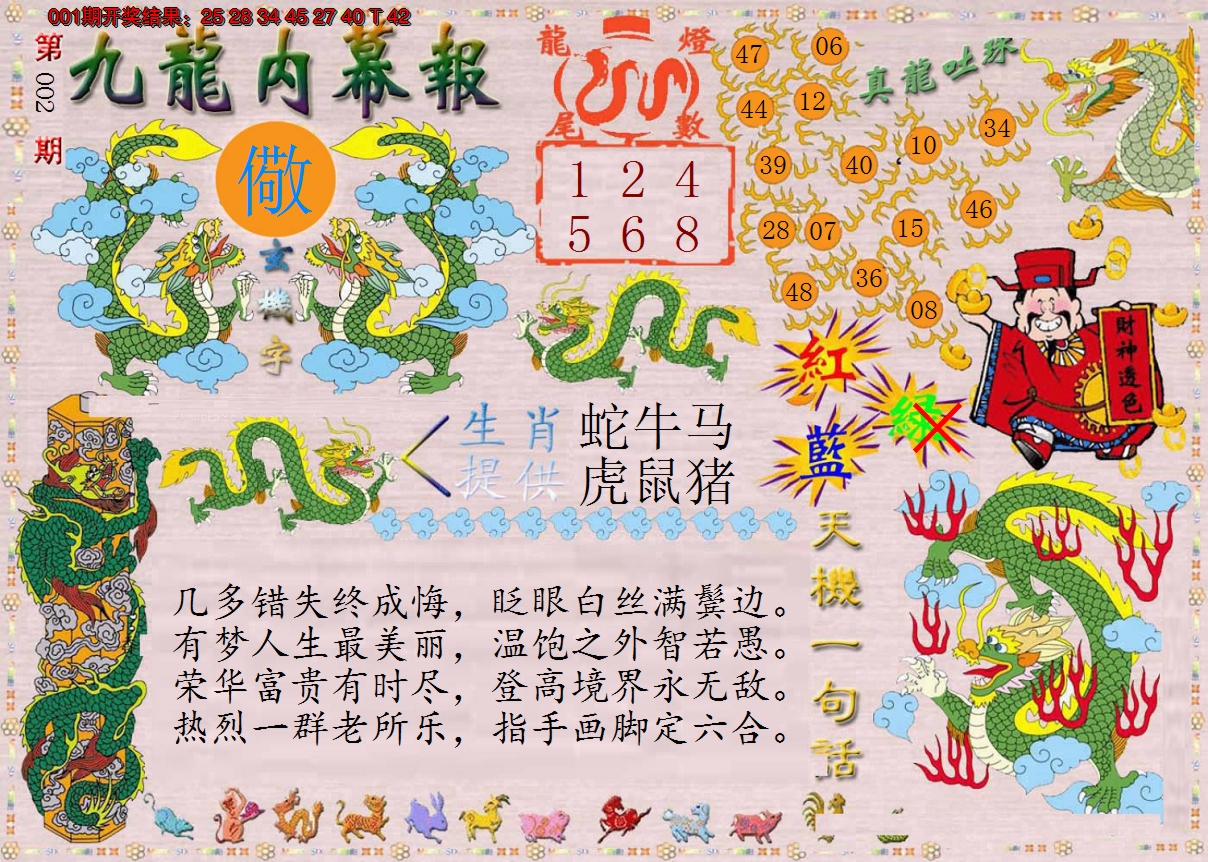 001期开奖结果：25 28 34 45 27 40 T 42
第002期
九龍内幕報
儆
玄機字
龍燈
尾數
1 2 4
5 6 8
真龍吐珠
47 06
44 12
39 40 10 34
28 07 15 46
48 36 08
紅
綠
藍
財神透色
生肖 蛇牛马
提供 虎鼠猪
天機一句话
几多错失终成悔，眨眼白丝满鬓边。
有梦人生最美丽，温饱之外智若愚。
荣华富贵有时尽，登高境界永无敌。
热烈一群老所乐，指手画脚定六合。